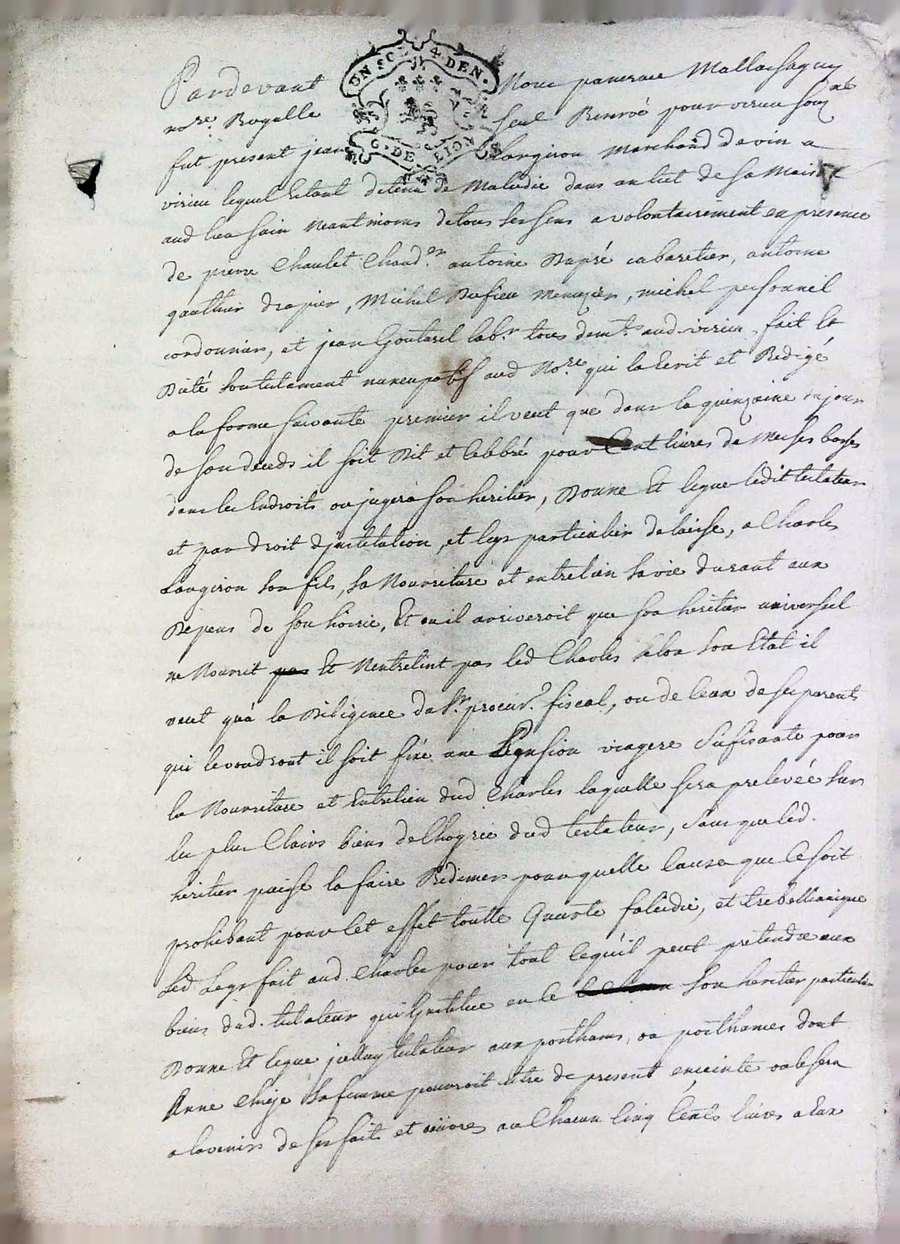 UN SOL 4 DEN.
G. DE LION
Pardevant Nous pancrace Mallassagny
no.re Royalle seul Reservé pour virieu sous.né
fut present jean Langiron Marchand de vin a
virieu lequel Etant detenu de Maladie dans un lict de sa Maison
aud lieu sain Neantmoins de tous ses sens a volontairement en presence
de pierre Chaulet Chaud.er antoine Dupré cabaretier, antoine
gauthier drapier, Michel Dufieu Menuzier, michel personnel
cordonnier, et jean Goutarel lab.r tous dem.ts aud virieu, fait et
Dicté son testament nuncupatif aud No.re qui la Ecrit et Redigé
a la forme suivante premier il veut que dans la quinzaine du jour
de son deceds il soit Dit et Celebré pour Cent livres de Messes basses
dans les Endroits ou jugera son heritier, Donne Et legue ledit testateur
et par droit d'institution, et legs particulier delaisse, a Charles
Langiron son fils, sa Nourriture et entretien sa vie durant aux
Depens de son hoirie, Et ou il arriveroit que son heritier universel
ne Nourrit pas Et N'entretint pas led Charles selon son Etat il
veut qua la Diligence du Sr. procur.r fiscal, ou de Ceux de ses parents
qui le voudront il soit fixé une Pension viagere sufisante pour
la Nourriture et Entretien dud Charles laquelle sera prelevée sur
les plus Clairs biens de lhoyrie dud testateur, sans que led.
heritier puisse la faire Redimer pour quelle Cause que Ce soit
prohibant pour Cet effet toutte Quarte falcidie, et trebellianique
led Legs fait aud. Charles pour tout Ce quil peut pretendre aux
biens dud. testateur qui l'institue en le son heritier particulier
Donne Et legue jcelluy testateur aux posthume, ou posthumes dont
Anne sa femme pourroit etre de present enceinte ou le sera
a lavenir de ses faits et œuvres a Chacun Cinq Cents livres a Eux